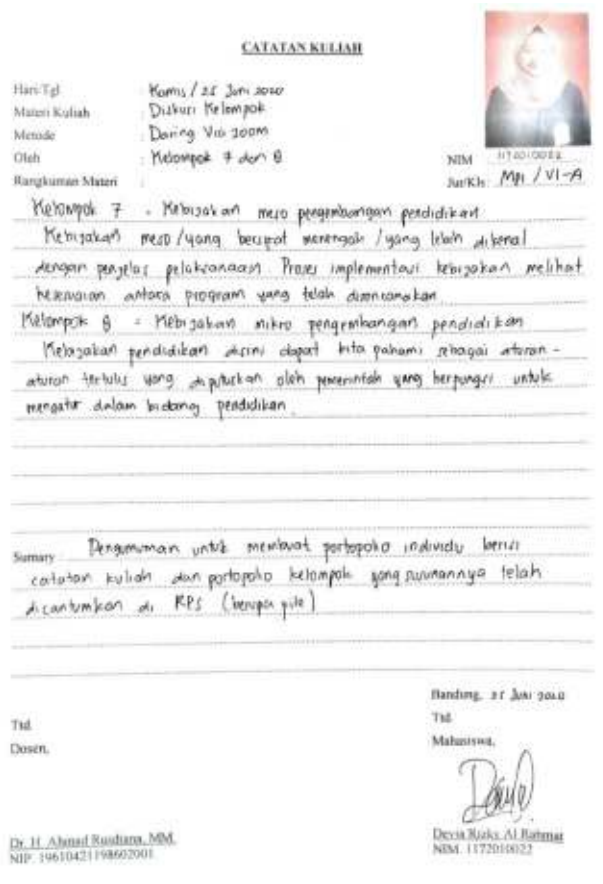 CATATAN KULIAH
Hari/Tgl : Kamis / 25 Juni 2020
Materi Kuliah : Diskusi Kelompok
Metode : Daring Via Zoom
Oleh : Kelompok 7 dan 8
NIM 1172010022
Rangkuman Materi :
Jur/Kls MPI / VI-A
Kelompok 7 = Kebijakan meso pengembangan pendidikan
Kebijakan meso / yang bersipat menengah / yang lebih dikenal
dengan penjelas pelaksanaan. Proses implementasi kebijakan melihat
kesesuaian antara program yang telah direncanakan
Kelompok 8 = Kebijakan mikro pengembangan pendidikan
Kebijakan pendidikan disini dapat kita pahami sebagai aturan-
aturan tertulis yang diputuskan oleh pemerintah yang berpungsi untuk
mengatur dalam bidang pendidikan.
Sumary : Pengumuman untuk membuat portopolio individu berisi
catatan kuliah dan portopolio kelompok yang susunannya telah
dicantumkan di RPS (berupa pile)
Bandung, 25 Juni 2020
Ttd.
Ttd.
Dosen,
Mahasiswa,
Dr. H. Ahmad Rusdiana, MM.
NIP. 196104211986021001
Devia Rizky Al Rahmar
NIM. 1172010022